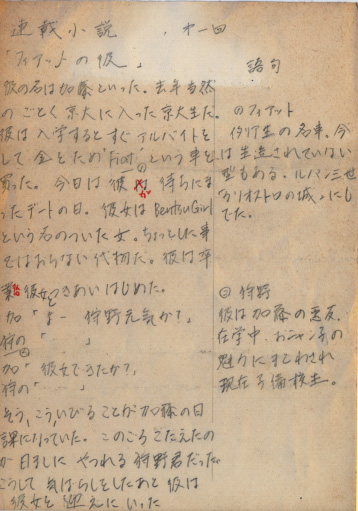 連載小説 , 第一回
「フィアットの彼」
彼の名は加藤といった。去年当然
のごとく京大に入った京大生だ。
彼は入学するとすぐアルバイトを
して金をため"Fiat"①という車を
買った。今日は彼が待ちにま
ったデートの日。彼女はBentsuGirl
という名のついた女。ちょっとした事
ではおちない代物だ。彼は卒
業後彼女とつきあいはじめた。
加「よー 狩野元気か?」
狩の「 」
加「彼女できたか?」
狩の「 」
そう、こういびることが加藤の日
課になっていた。このごろこたえたの
か日ましにやつれる狩野君だった。
こうして気はらしをしたあと彼は
彼女を迎えにいった
語句
①フィアット
イタリア生の名車。今
は生造されていない
型もある。ルパン三世
カリオストロの城。にも
でた。
②狩野
彼は加藤の悪友。
在学中、
魅力にまどわされ
現在予備校生。